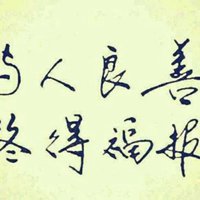 人良善
终得福报